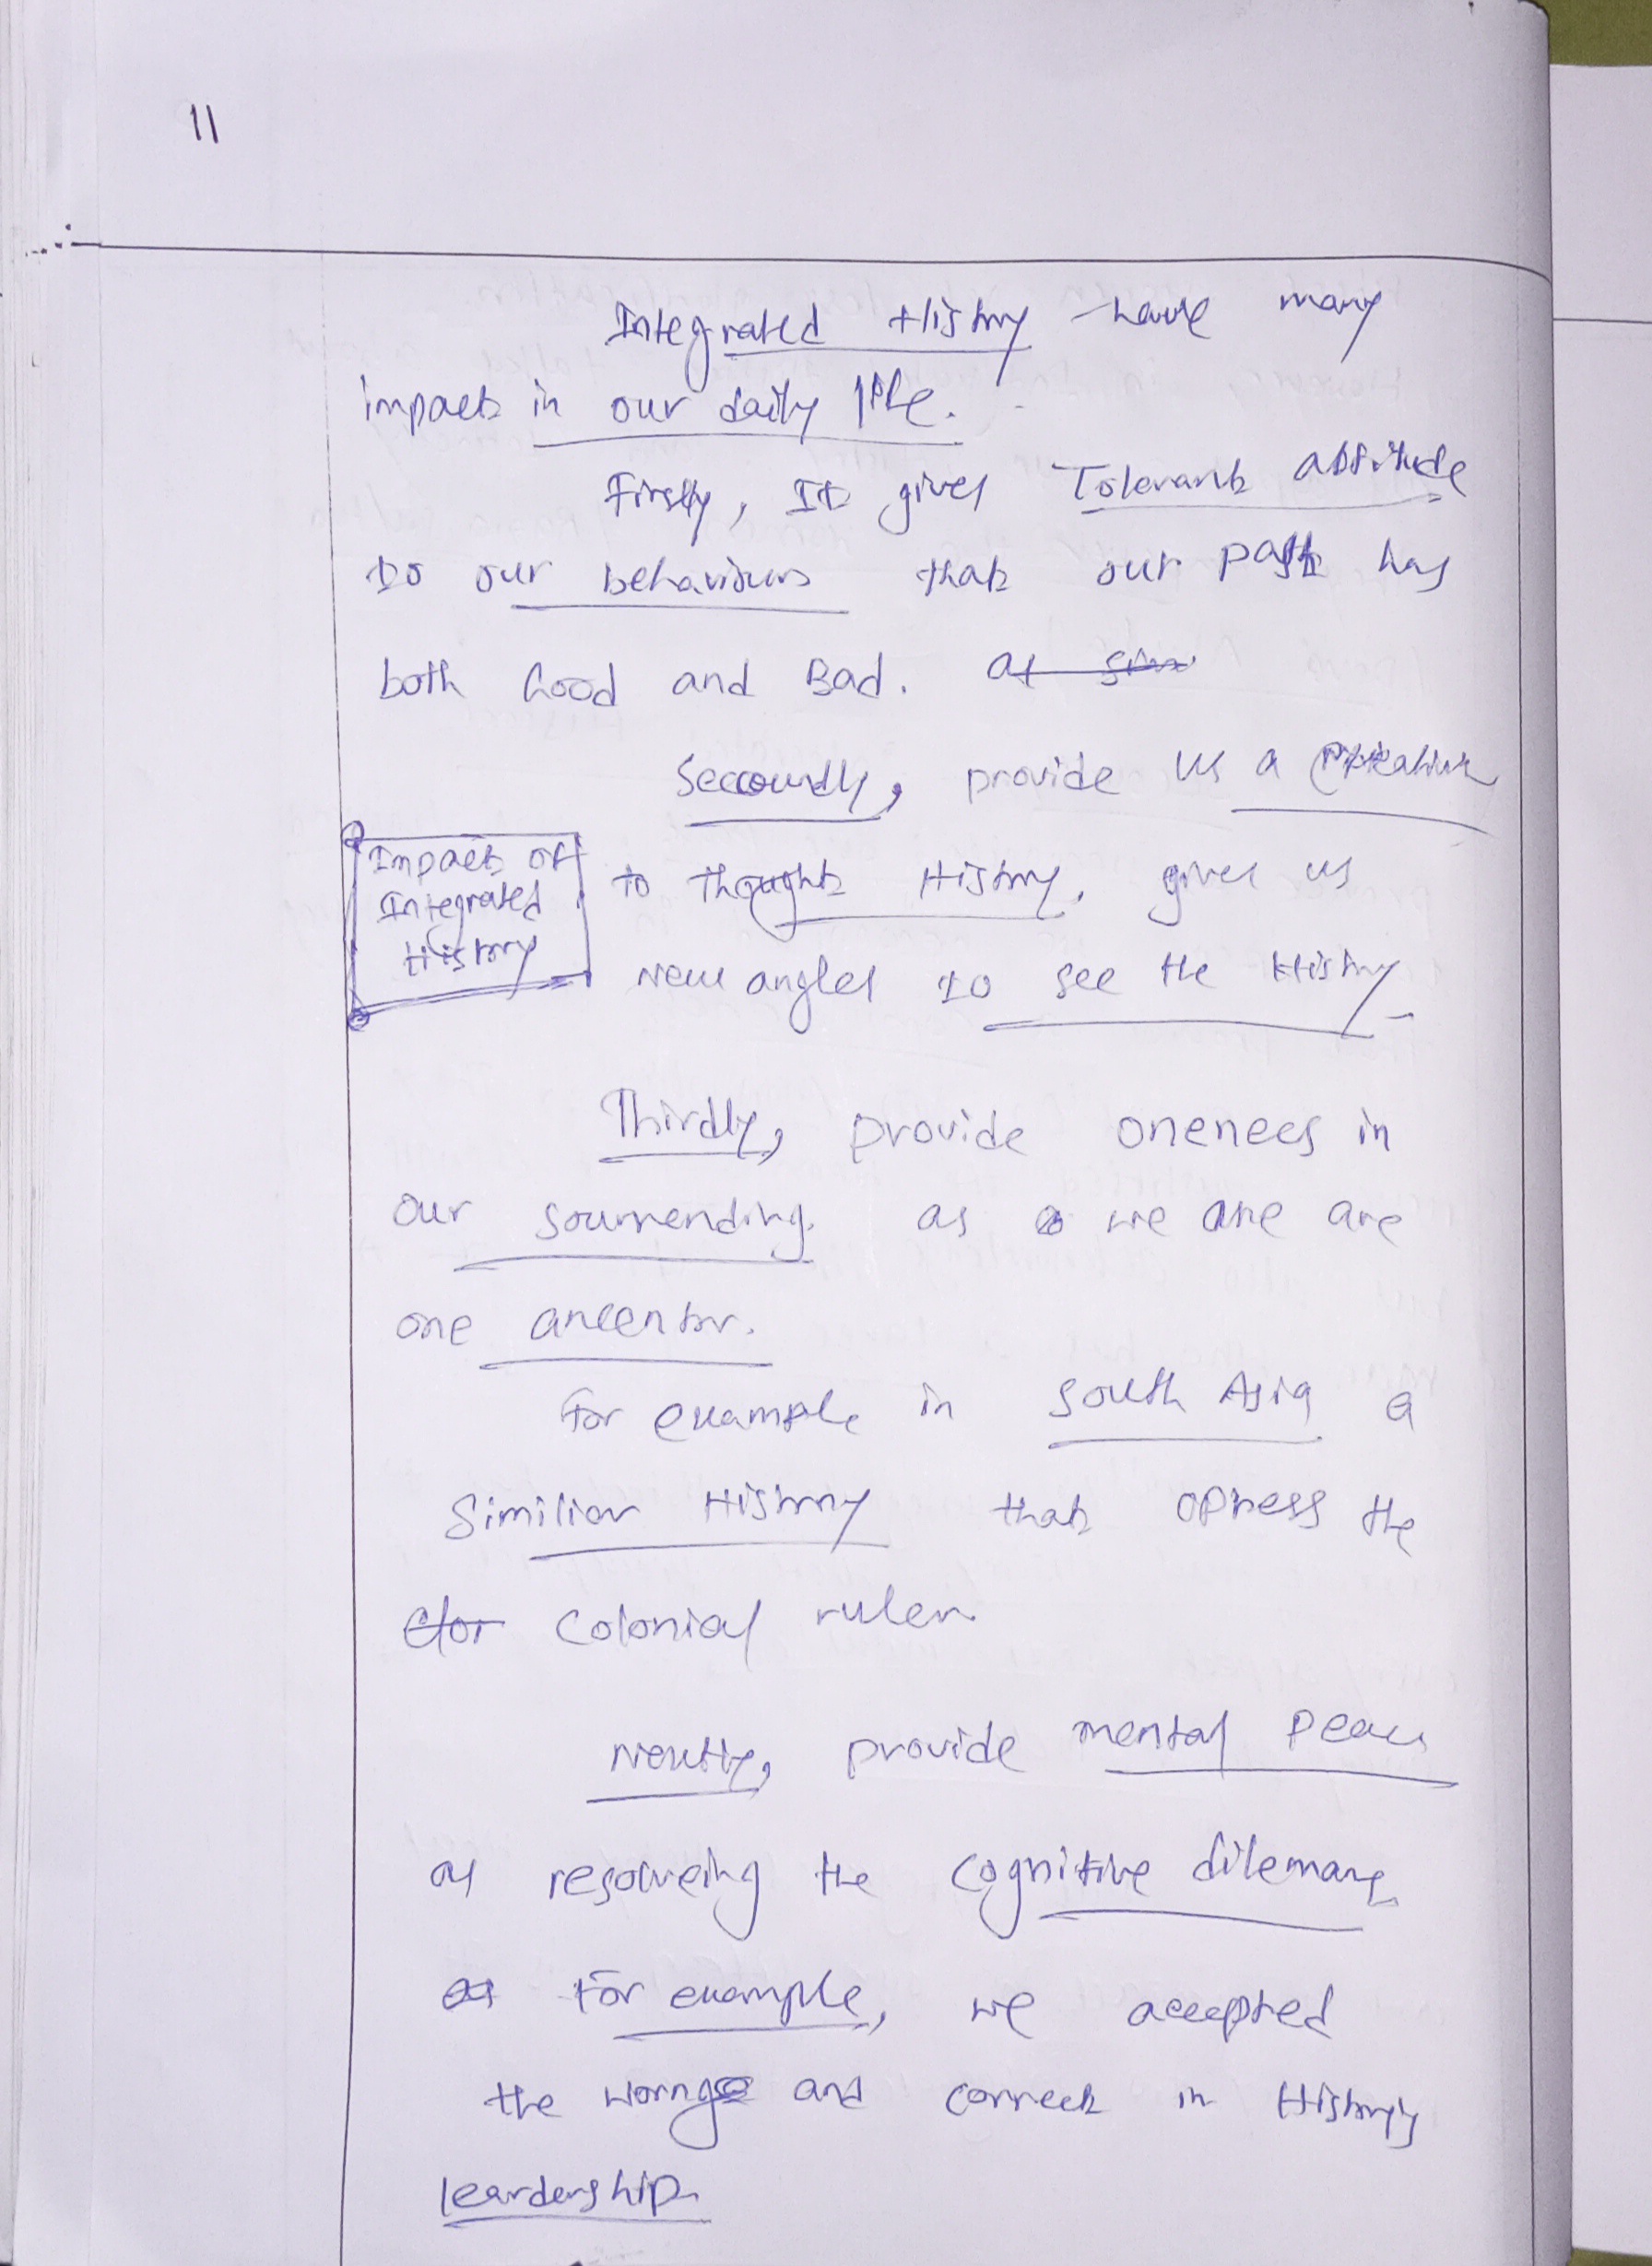 11
Integrated History have many
impacts in our daily life.
Firstly, It gives Tolerant attitude
to our behaviours that our past has
both Good and Bad.
Seccoundly, provide us a
Impact of
Integrated
History
to thought History. gives us
new angles to see the History.
Thirdly, provide onenees in
our sourrending. as we are are
one ancentor.
for example in South Asia a
Similior History that opress the
colonial ruler.
Nextly, provide mental peace
as resolveing the cognitive dilemma
For example, we accepted
the worng and correct in History's
leardership.